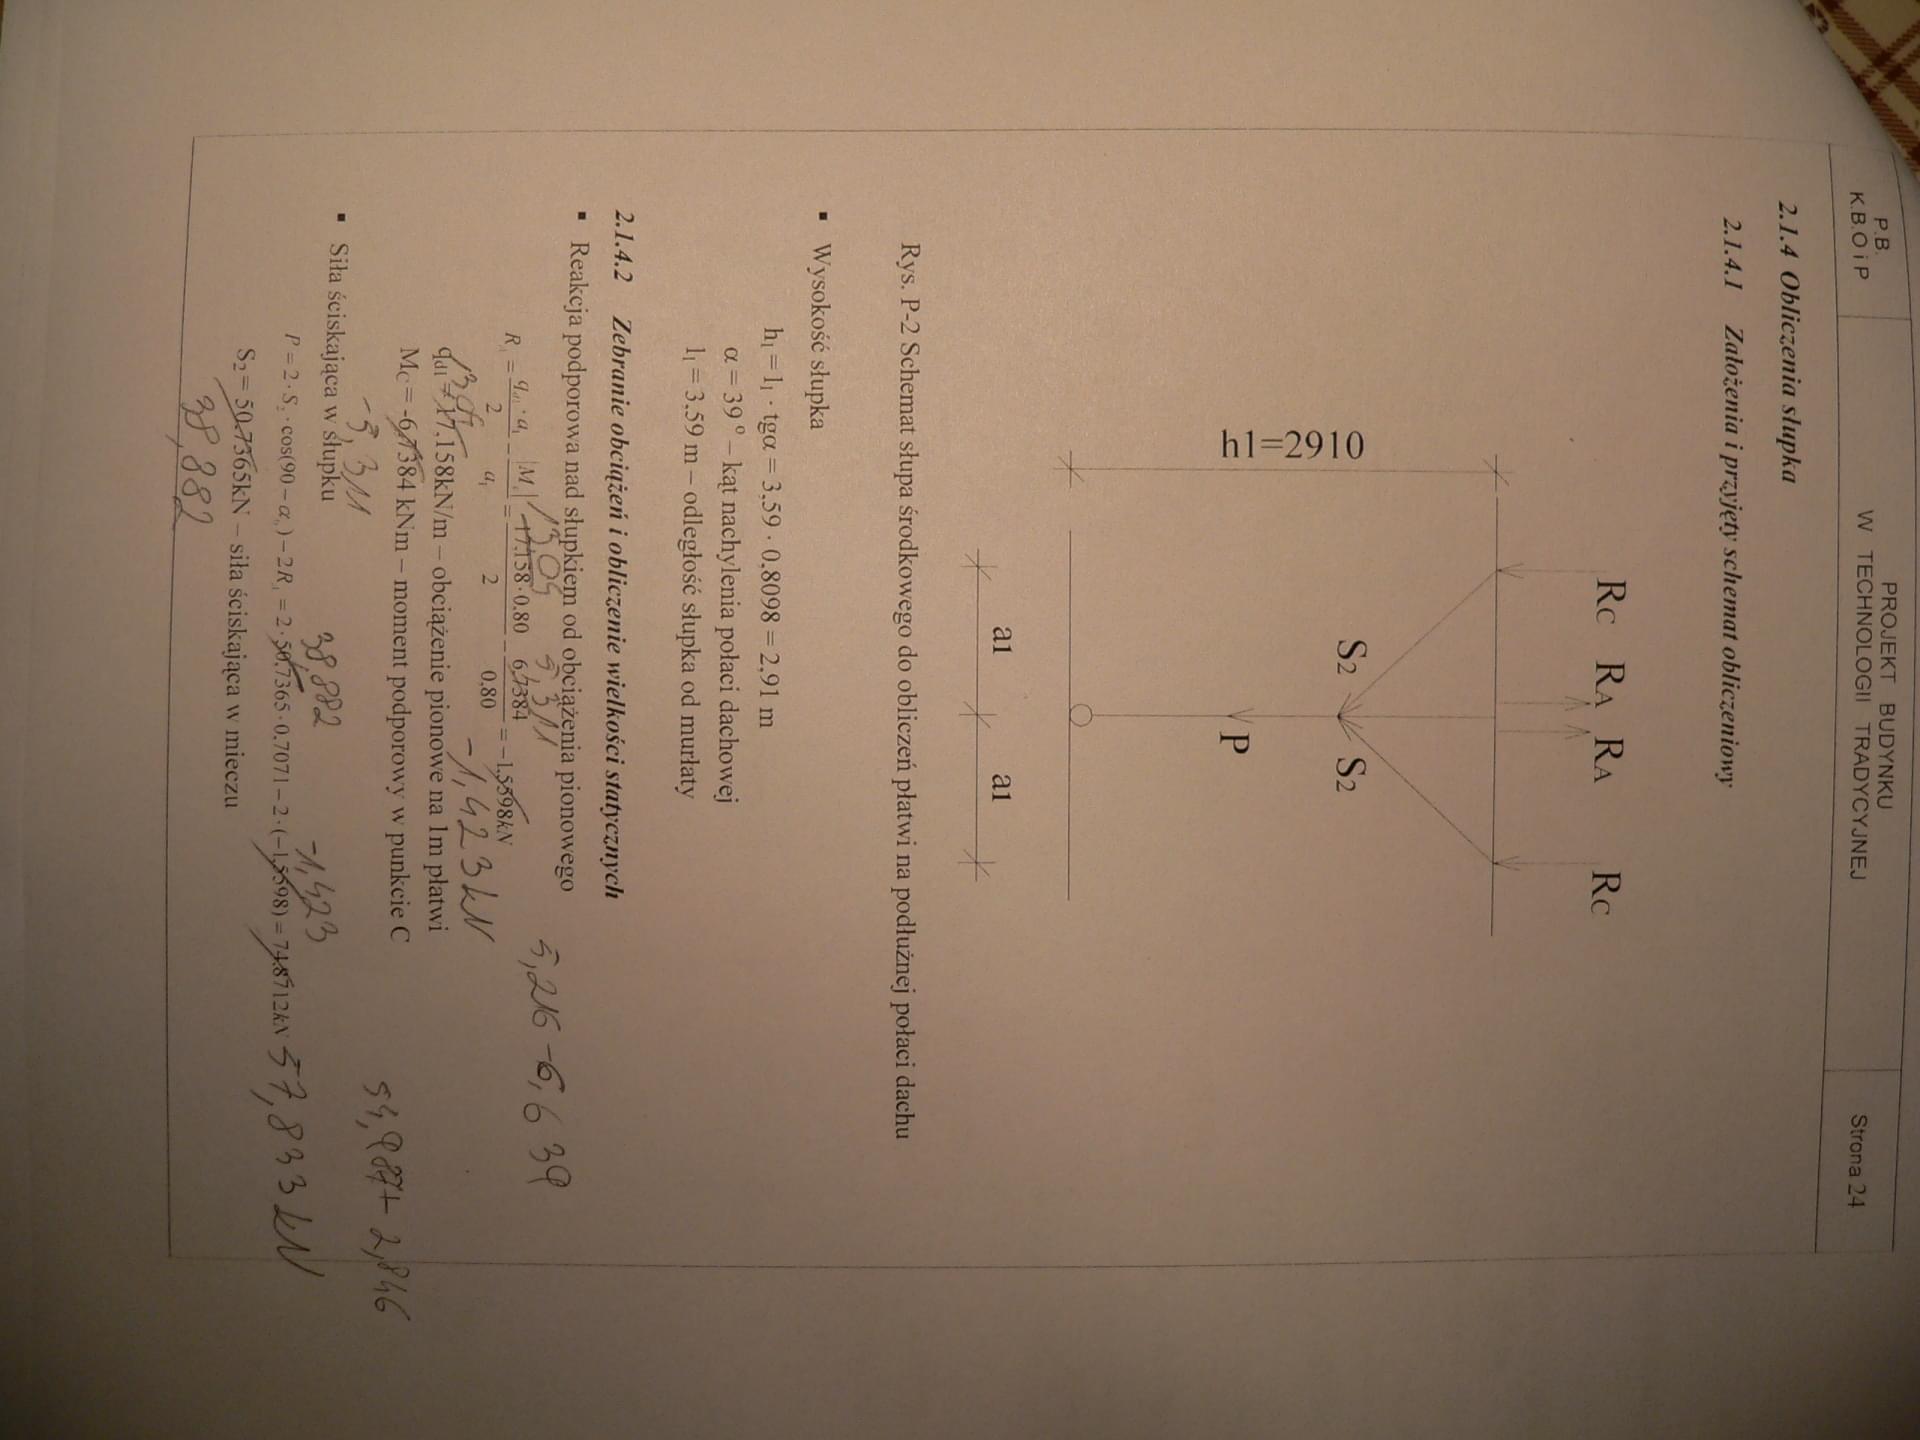 P.B.
K.B.O i P
PROJEKT BUDYNKU
W TECHNOLOGII TRADYCYJNEJ
Strona 24
2.1.4 Obliczenia słupka
2.1.4.1 Założenia i przyjęty schemat obliczeniowy
RC RA RA RC
S2 S2
h1=2910
P
a1 a1
Rys. P-2 Schemat słupa środkowego do obliczeń płatwi na podłużnej połaci dachu
▪ Wysokość słupka
h₁ = l₁ · tgα = 3,59 · 0,8098 = 2,91 m
α = 39 ° – kąt nachylenia połaci dachowej
l₁ = 3,59 m – odległość słupka od murłaty
2.1.4.2 Zebranie obciążeń i obliczenie wielkości statycznych
▪ Reakcja podporowa nad słupkiem od obciążenia pionowego
13,04 5,311 5,216 -6,639
= 17.158·0.80 / 2 – 6,7384 / 0,80 = –1,5598kN
-1,423 kN
qd1 = 17.158kN/m – obciążenie pionowe na 1m płatwi
MC = -6,7384 kNm – moment podporowy w punkcie C
-5,311
54,987+ 2,846
▪ Siła ściskająca w słupku
38882 -1,423
= 2·50.7365·0.7071–2·(–1,5598) = 74.8712kN 57,833 kN
S₂ = 50.7365kN – siła ściskająca w mieczu
38,882